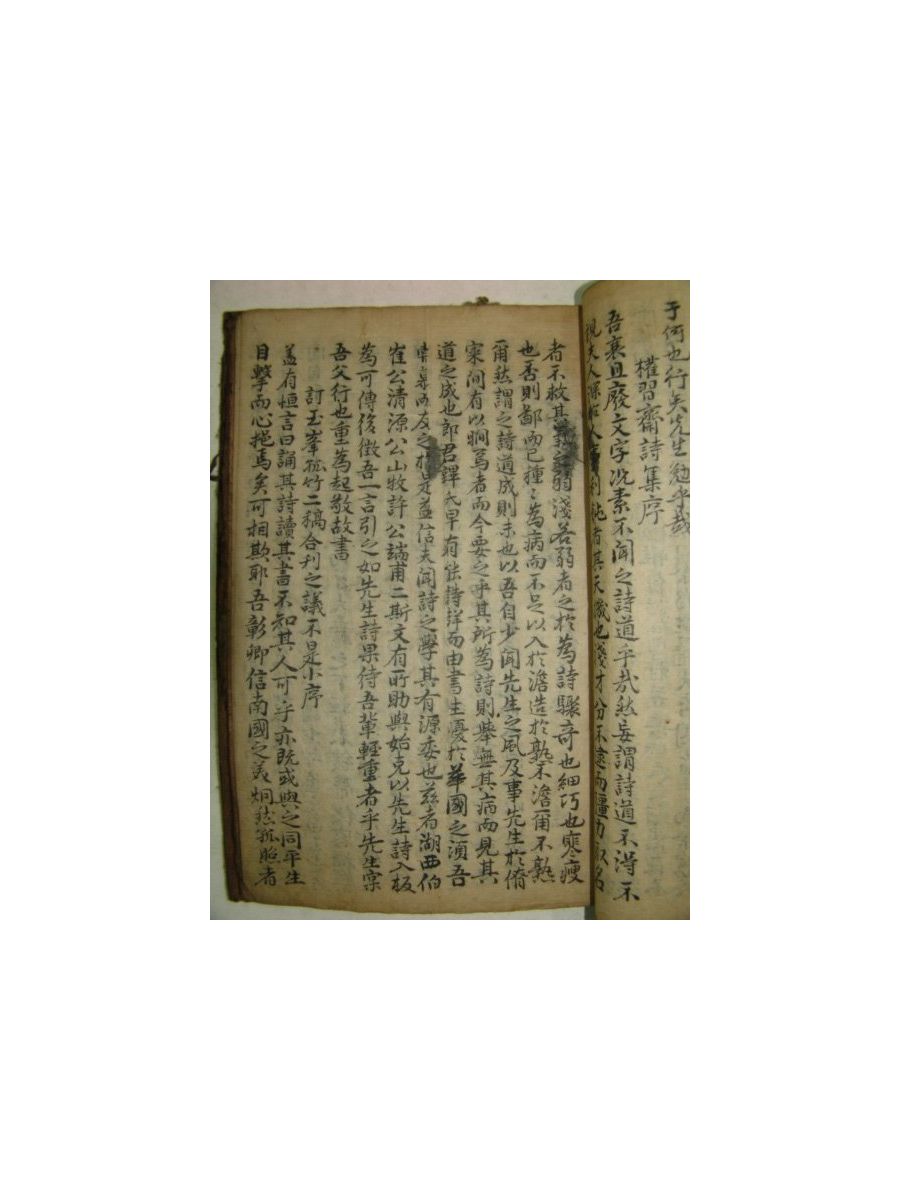 于何也行矣先生勉乎哉
權習齋詩集序
吾衰且廢文字況素不聞之詩道乎哉然妄謂詩道不得不
視夫人 人 利鈍者其天機也淺才分不逮而彊力 名
者不救其 弱淺若弱者之於為詩驟奇也細巧也寒瘦
也否則鄙而已種種為病而不足以入於澹造於熟不澹爾不熟
爾然謂之詩道成則未也以吾自少聞先生之風及事先生於僚
寀間有以暅焉者而今要之乎其所為詩則舉無其病而見其
道之成也郎君韠 早有能詩詳而由書生憂於華國之湏吾
嘗 而友之 是益信夫聞詩之學其有源委也玆者湖西伯
崔公清源公山牧許公端甫二斯文有所助與始克以先生詩入板
為可傳後徵吾一言引之如先生詩果待吾輩輕重者乎先生寔
吾父行也重為起敬故書
訂玉峯孤竹二稿合刋之議不是小序
盖有恒言曰誦其詩讀其書不知其人可乎亦既或與之同平生
目擊而心挹焉矣可相欺耶吾彰卿信南國之美炯然孤照者